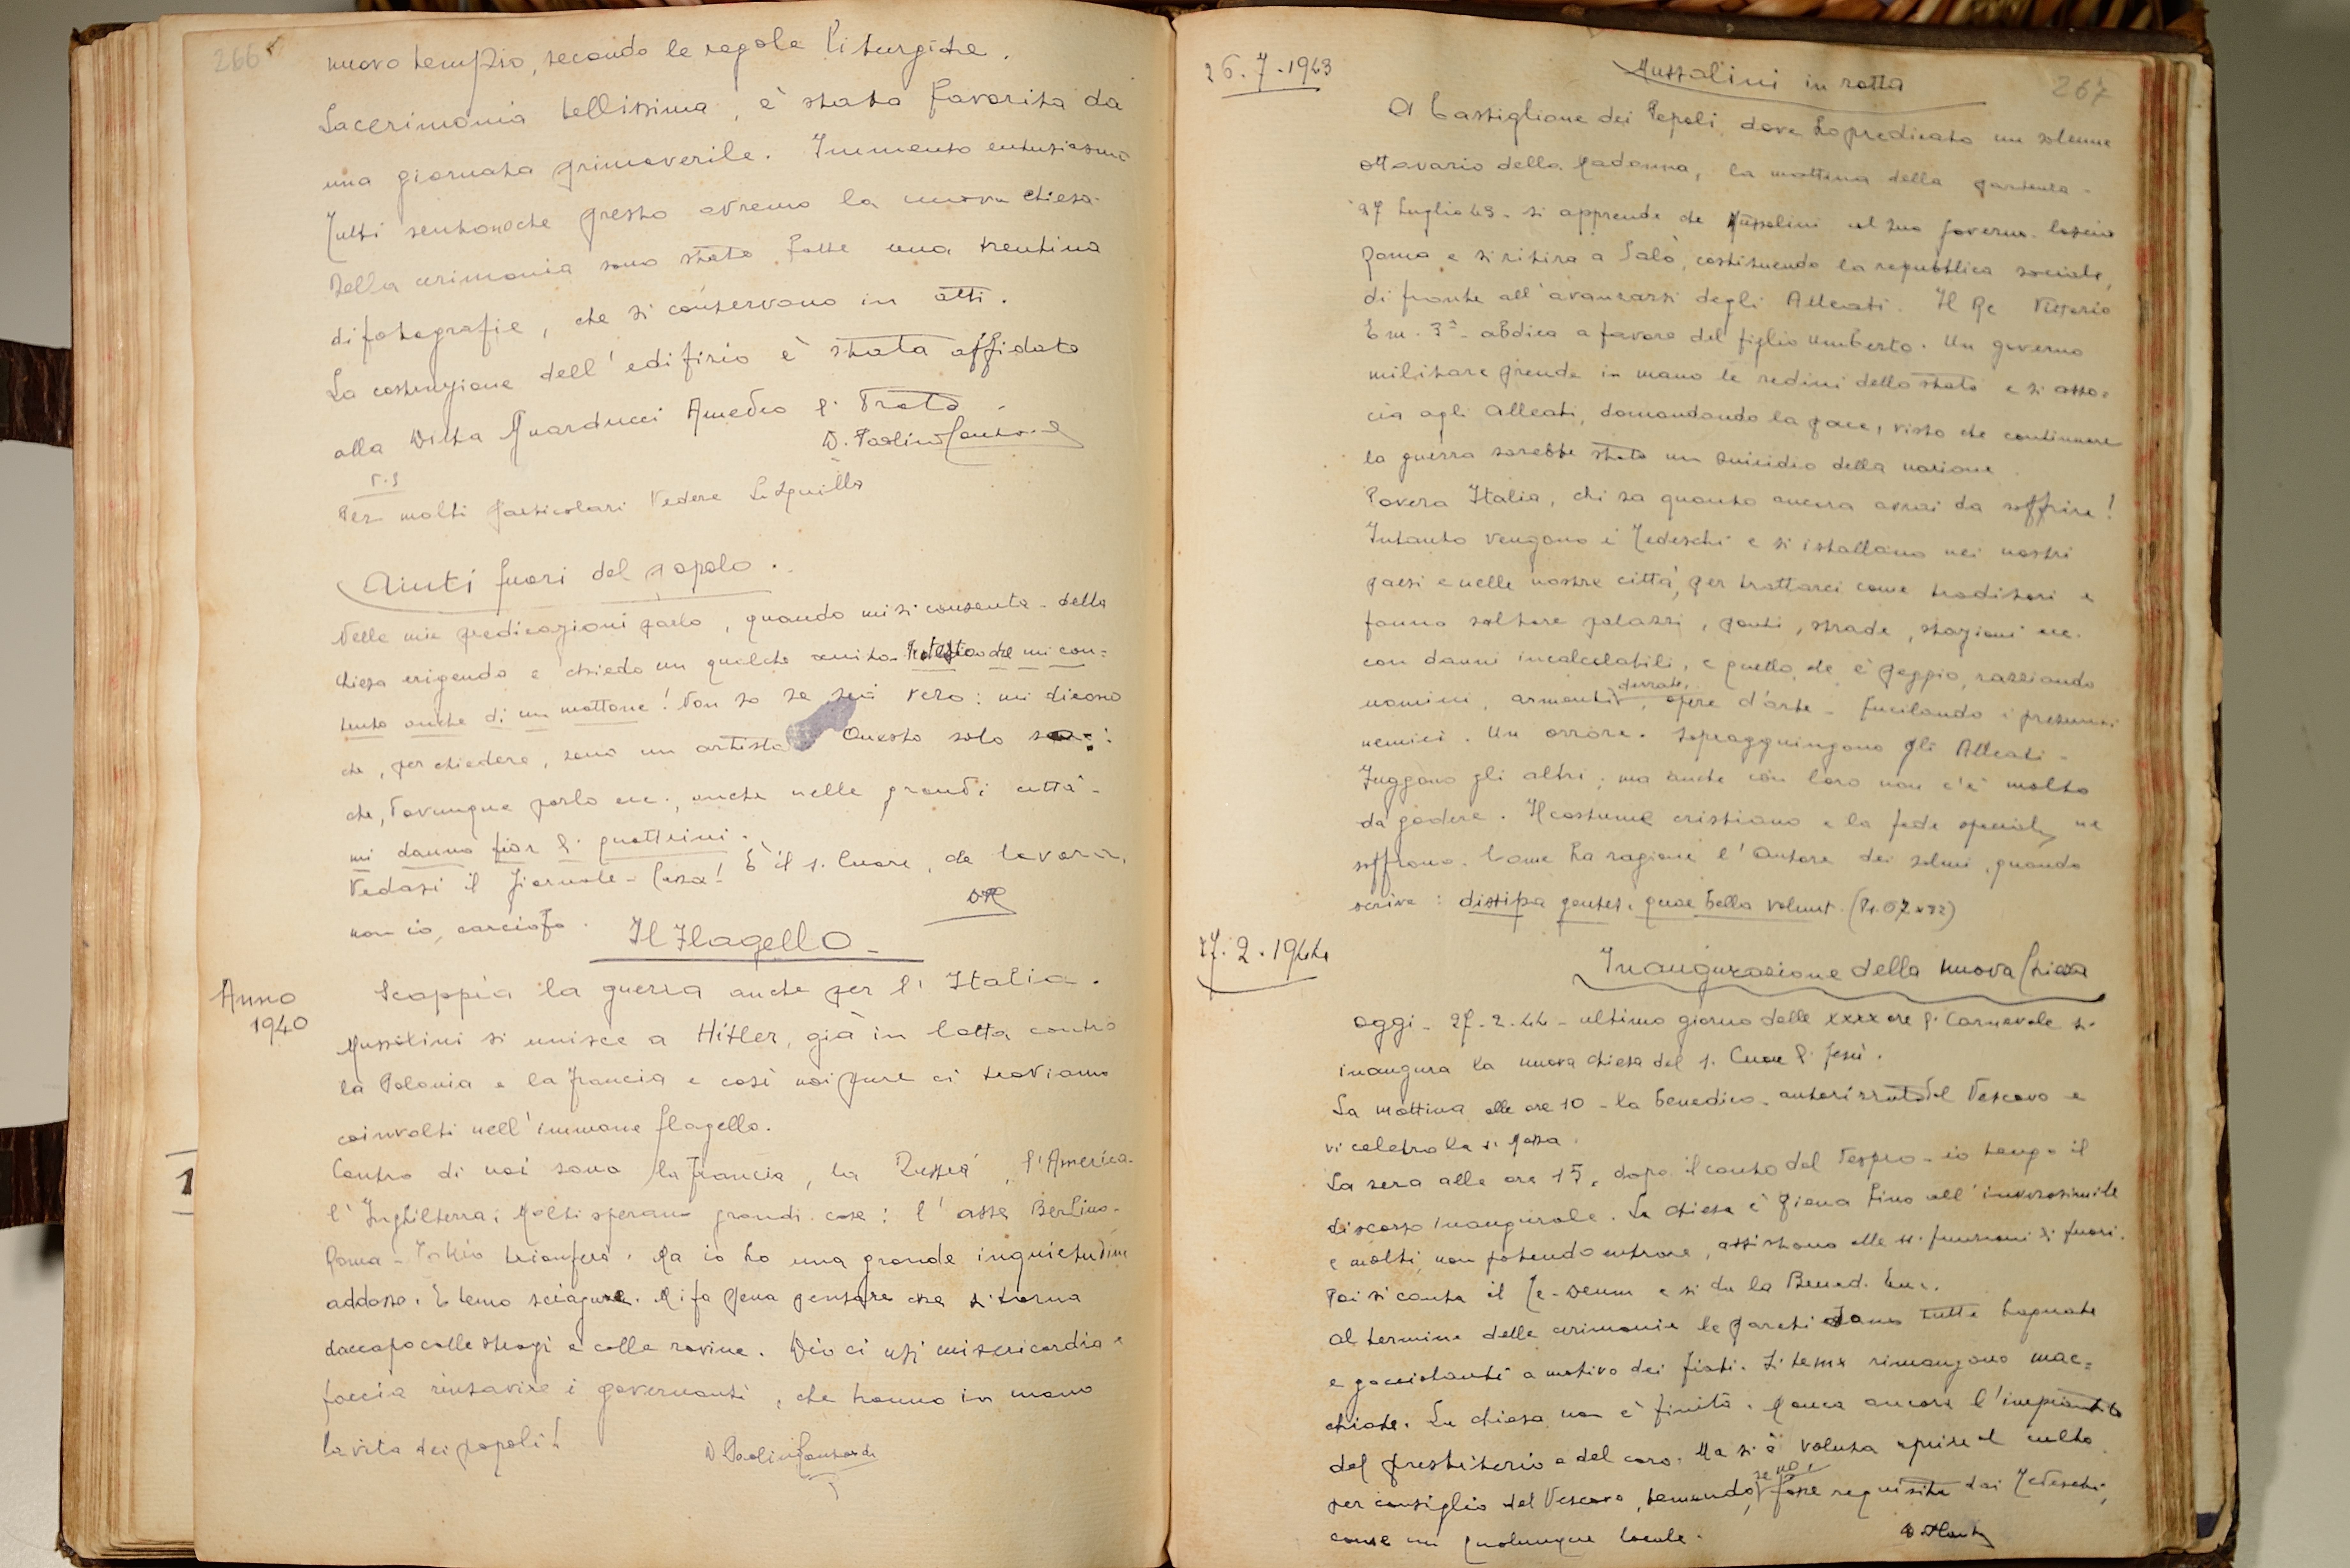 266
nuovo tempio, secondo le regole liturgiche.
La cerimonia bellissima, è stata favorita da
una giornata primaverile. Immenso entusiasmo
Tutti sentono che presto avremo la nuova chiesa.
Della cerimonia sono state fatte una trentina
di fotografie, che si conservano in atti.
La costruzione dell'edifizio è stata affidata
alla Ditta Guarducci Amedeo di Prato
D. Paolino
P.S
Per molti particolari vedere Lo Squilla
Aiuti fuori del popolo.
Nelle mie predicazioni parlo, quando mi si consente - della
chiesa erigenda e chiedo un qualche aiuto che mi con=
tento anche di un mattone! Non so se sia vero: mi dicono
che, per chiedere, sono un artista Questo solo so:
che, dovunque parlo ecc., anche nelle grandi città -
mi danno fior di quattrini.
Vedasi il Giornale - Cassa! È il s. Cuore, che lavora,
non io, carciofo.
Il Flagello -
Anno
1940
Scoppia la guerra anche per l'Italia.
Mussolini si unisce a Hitler, già in lotta contro
la Polonia e la Francia e così noi pure ci troviamo
coinvolti nell'immane flagello.
Contro di noi sono la Francia, la Russia, l'America
l'Inghilterra; Molti sperano grandi cose: l'asse Berlino-
Roma - Tokio trionferà. Ma io ho una grande inquietudine
addosso. E temo sciagure. Mi fa pena pensare che si torna
daccapo colle stragi e colle rovine. Dio ci usi misericordia e
faccia rinsavire i governanti, che hanno in mano
la vita dei popoli!
D Paolino
26.7.1943
Mussolini in rotta
267
A Castiglione dei Pepoli, dove ho predicato un solenne
ottavario della Madonna, la mattina della partenza -
27 Luglio 43 - si apprende che Mussolini col suo governo lascia
Roma e si ritira a Salò, costituendo la repubblica sociale,
di fronte all'avanzarsi degli Alleati. Il Re Vittorio
Em. 3° - abdica a favore del figlio Umberto. Un governo
militare prende in mano le redini dello stato e si asso=
cia agli Alleati, domandando la pace, visto che continuare
la guerra sarebbe stato un suicidio della nazione.
Povera Italia, chi sa quanto ancora avrai da soffrire!
Intanto vengono i Tedeschi e si istallano nei nostri
paesi e nelle nostre città, per trattarci come traditori e
fanno saltare palazzi, ponti, strade, stazioni ecc.
con danni incalcolabili, e quello che è peggio, razziando
uomini, armenti, derrate, opere d'arte - fucilando i presunti
nemici. Un orrore. Sopraggiungono gli Alleati -
Fuggono gli altri; ma anche con loro non c'è molto
da godere. Il costume cristiano e la fede ne
soffrono. Come ha ragione l'Autore dei salmi, quando
scrive: dissipa gentes, quae bella volunt. (Ps. 67
27.2.1944
Inaugurazione della nuova Chiesa
Oggi - 27-2-44 - ultimo giorno delle XXXX ore di Carnevale si
inaugura la nuova chiesa del s. Cuore di Gesù.
La mattina alle ore 10 - la benedico - autorizzato dal Vescovo e
vi celebro la s. Messa.
La sera alle ore 15, dopo il canto del Vespro - io tengo il
discorso inaugurale. La chiesa è piena fino all'inverosimile
e molti, non potendo entrare, assistono alle ss. funzioni di fuori.
Poi si canta il Te-Deum e si da la Bened. Euc.
Al termine delle cerimonie le pareti sono tutte bagnate
e gocciolanti a motivo dei fiati. Si teme rimangono mac=
chiate. La chiesa non è finita. Manca ancora l'impiantito
del presbiterio e del coro. Ma si è voluta aprire al culto
per consiglio del Vescovo, temendo, se no, fosse requisita dai Tedeschi,
come un qualunque locale.